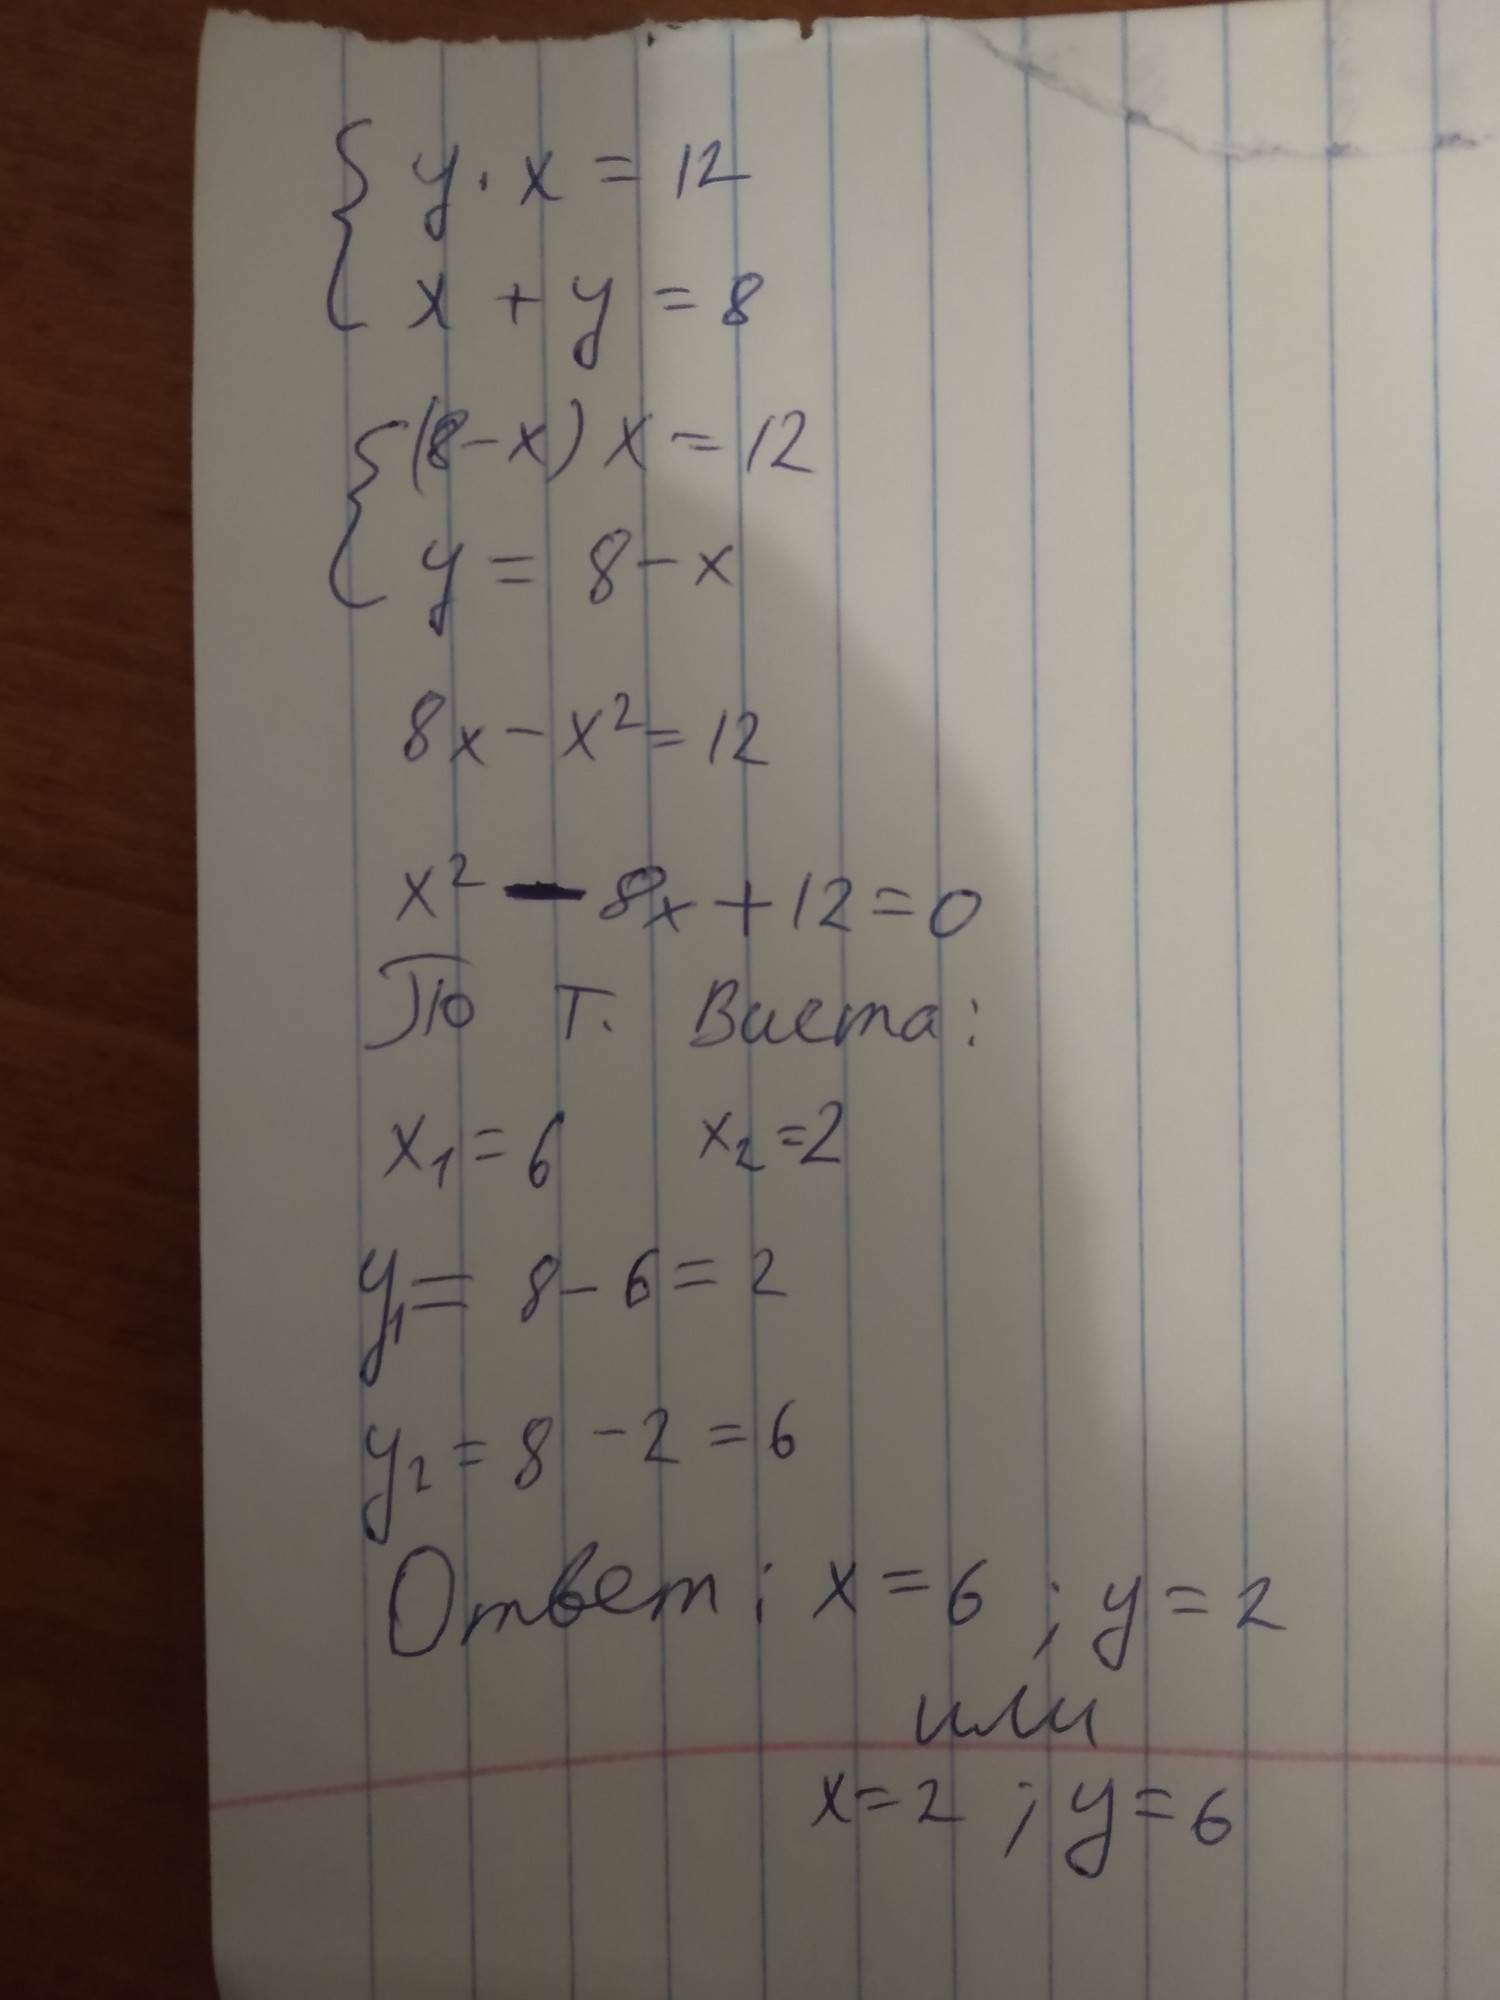 y · x = 12
x + y = 8
(8 - x) x = 12
y = 8 - x
8x - x² = 12
x² - 8x + 12 = 0
По т. Виета:
x₁ = 6 x₂ = 2
y₁ = 8 - 6 = 2
y₂ = 8 - 2 = 6
Ответ: x = 6 ; y = 2
или
x = 2 ; y = 6